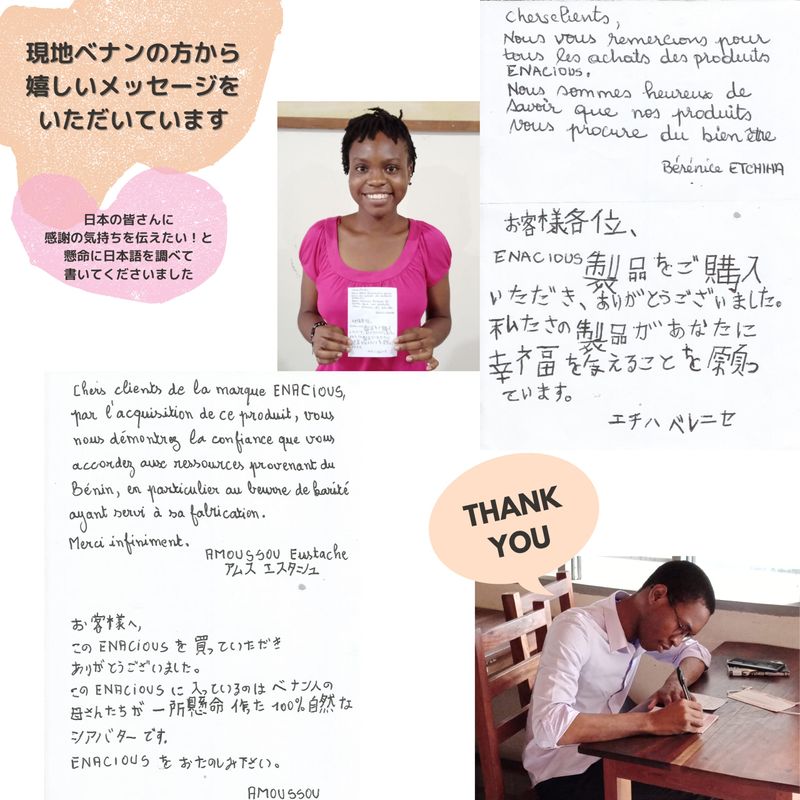 現地ベナンの方から
嬉しいメッセージを
いただいています
日本の皆さんに
感謝の気持ちを伝えたい！と
懸命に日本語を調べて
書いてくださいました
Chersclients,
Nous vous remercions pour
tous les achats des produits
ENACIOUS.
Nous sommes heureux de
savoir que nos produits
vous procure du bien être
Bérénice ETCHIHA
お客様各位、
ENACIOUS 製品をご購入
いただき、ありがとうございました。
私たさの製品があなたに
幸福を与えることを願っ
ています。
エチハ ベレニセ
Chers clients de la marque ENACIOUS,
par l'acquisition de ce produit, vous
nous démontrez la confiance que vous
accordez aux ressources provenant du
Bénin, en particulier au beurre de karité
ayant servi à sa fabrication.
Merci infiniment.
AMOUSSOU Eustache
アムス エスタシュ
お客様へ,
この ENACIOUS を買っていただき
ありがとうございました。
この ENACIOUS に入っているのは ベナン人の
母さんたちが 一所懸命 作た 100%自然な
シアバターです。
ENACIOUS をおたのしみ下さい。
AMOUSSOU
THANK
YOU